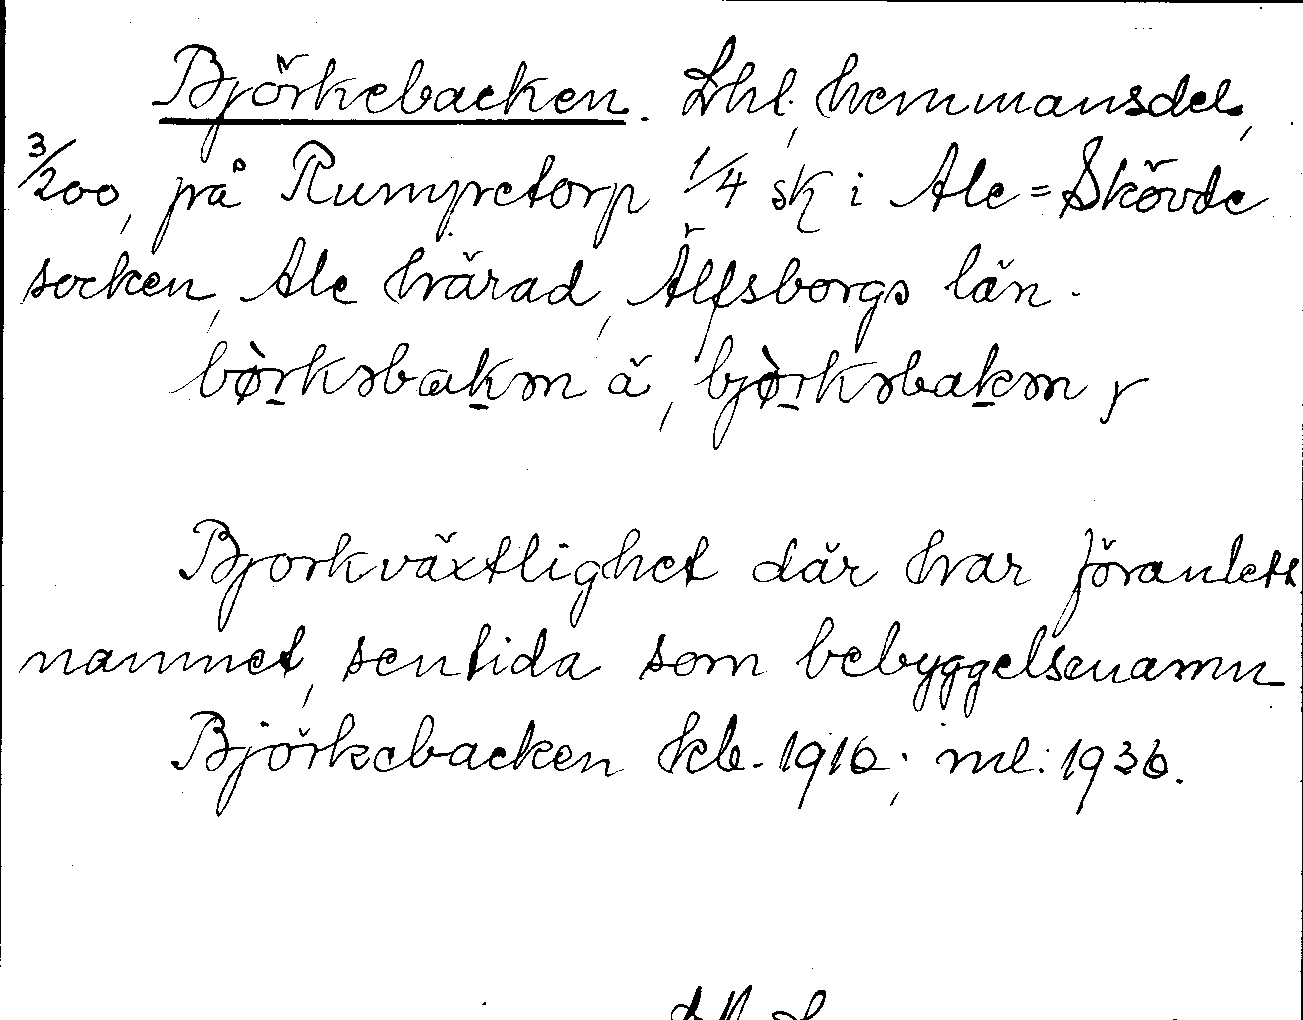 Björkebacken. Lhl, hemmansdel,
3/200, på Rumpetorp 1/4 sk i Ale=Skövde
socken, Ale härad, Älfsborgs län.
bø̀rkəbakən ä, bjø̀rkəbakən y
Bjorkväxtlighet där har föranlett
namnet, sentida som bebyggelsenamn
Björkebacken kb. 1916; ml: 1936.